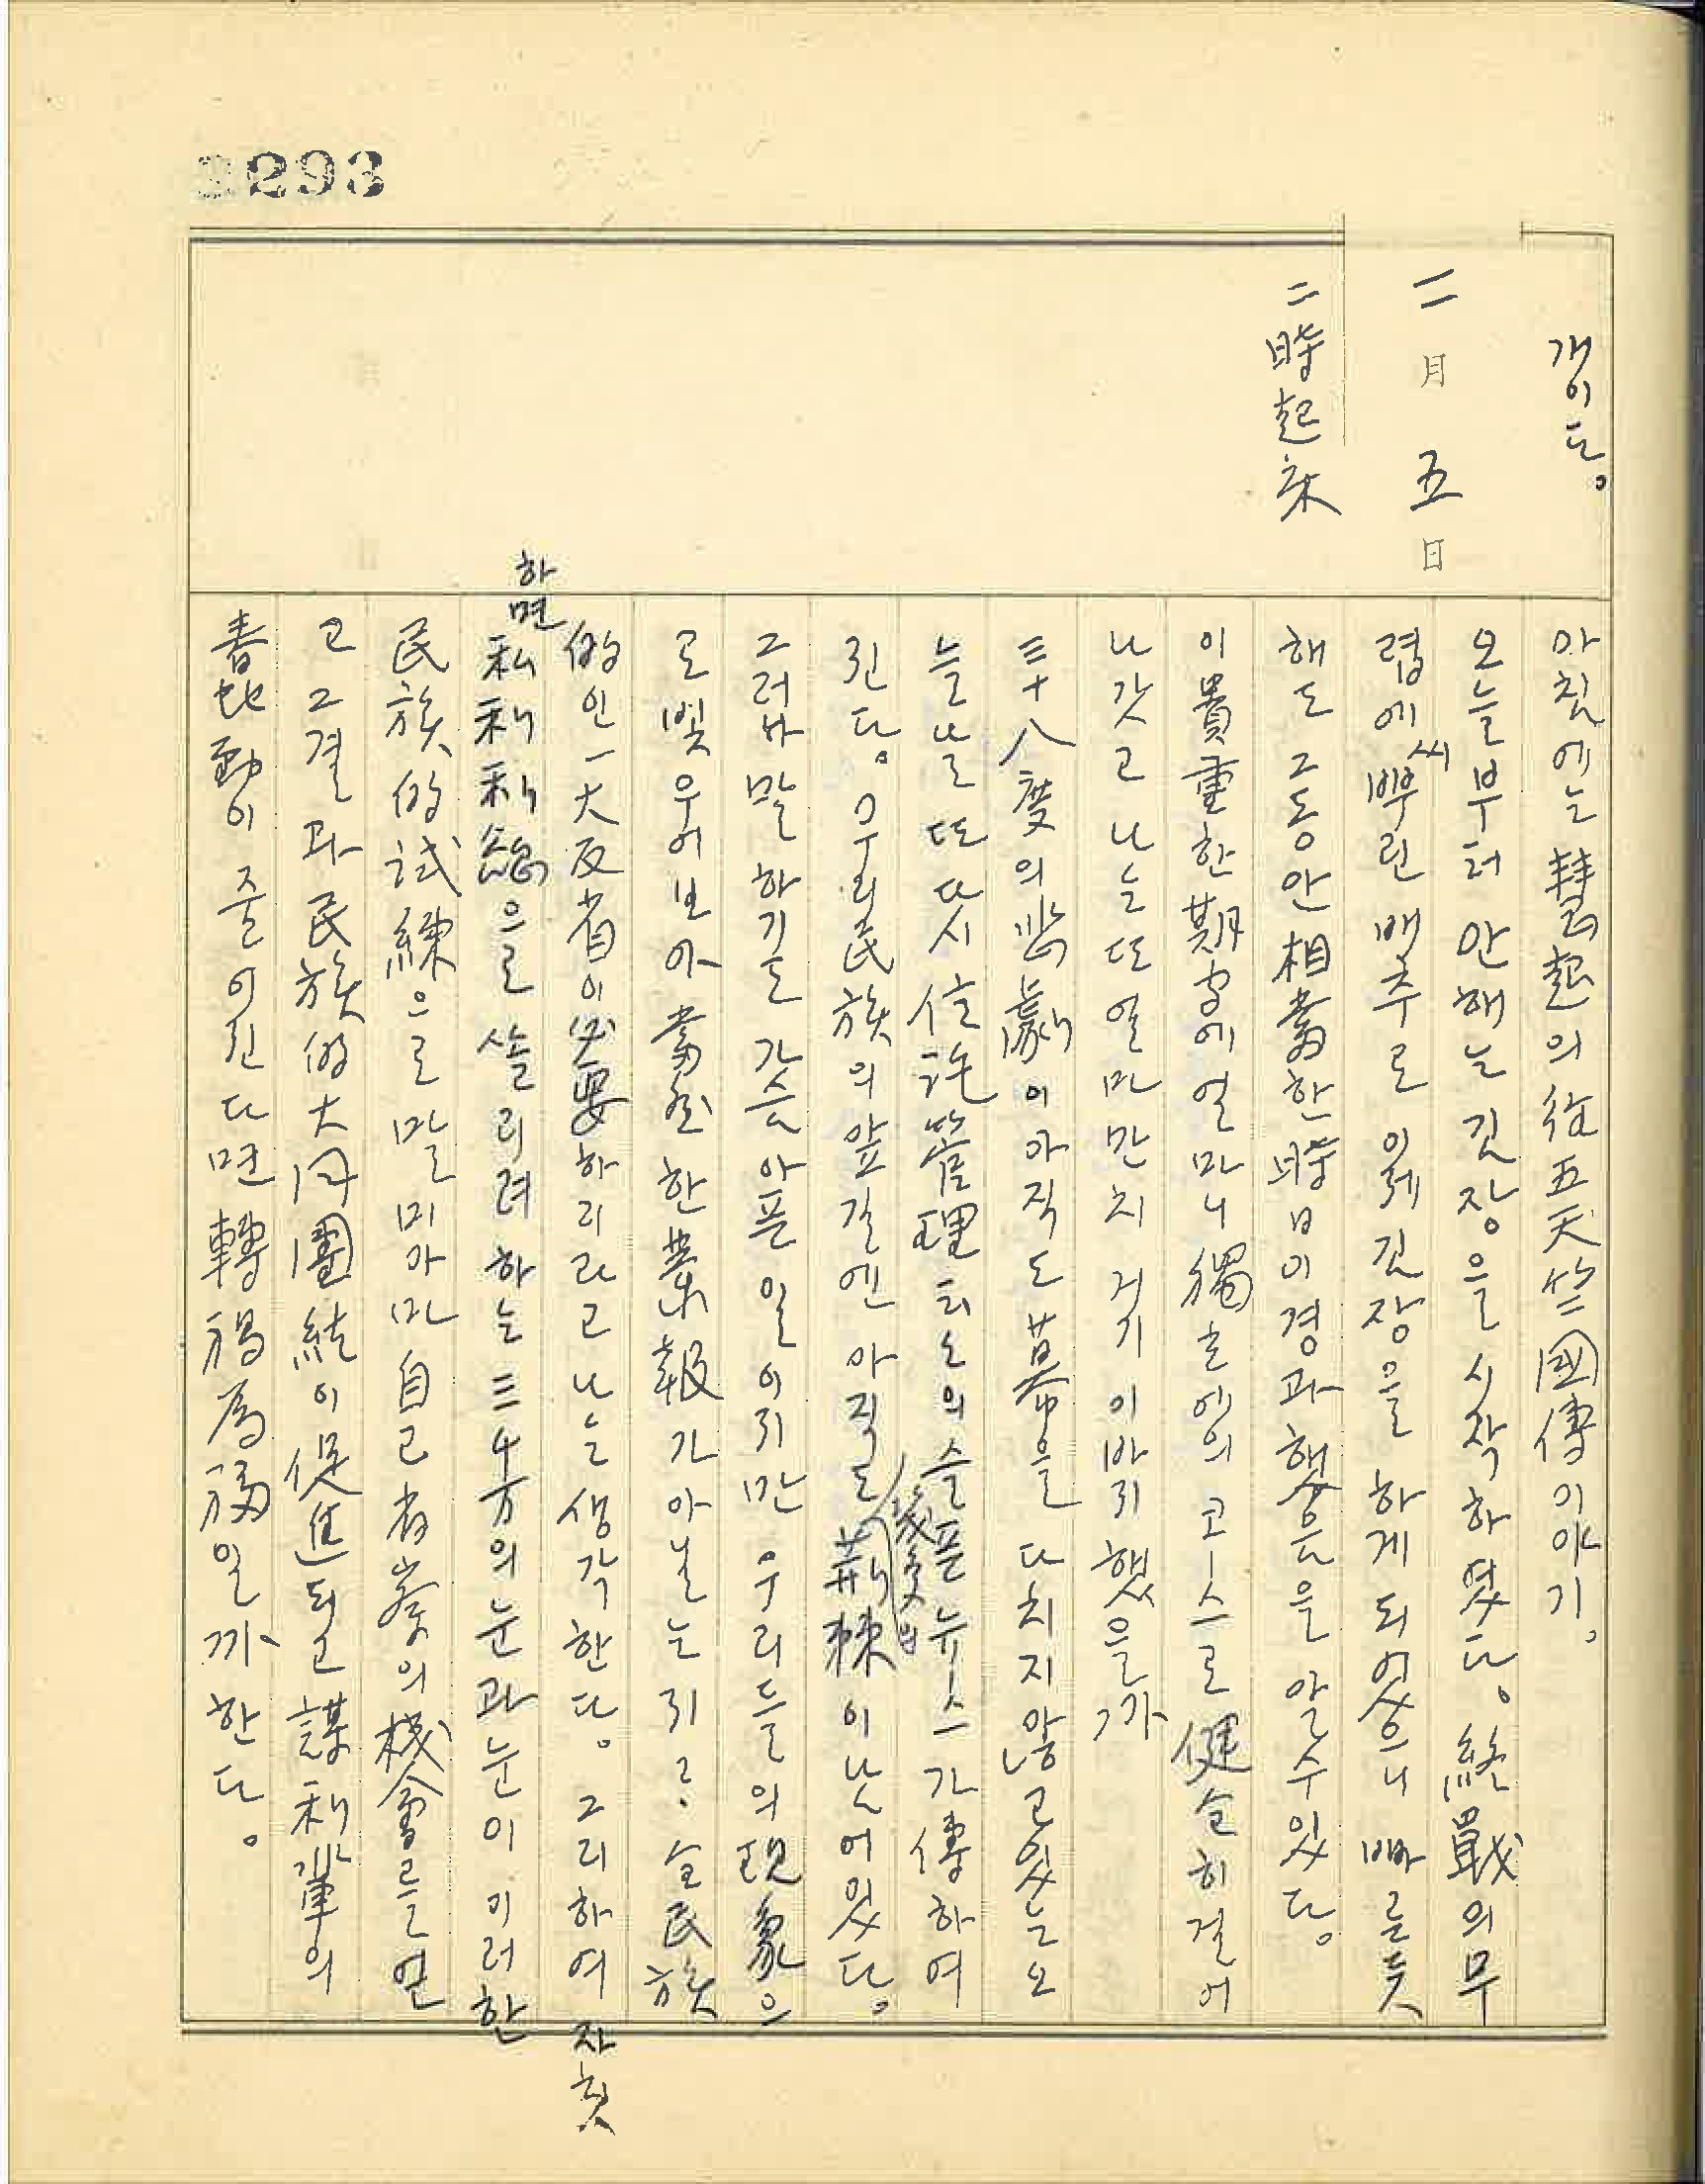 3293
개이드。
二月 五日
二時起床
아침에는 彗超의 往五天竺國傳 이야기。
오늘부터 안해는 긴장을 시작하였다。 終戰의 무
렵에 씨뿌린 배추로 인제 긴장을 하게 되었으니 빠른 듯
해도 그동안 相當한 時日이 경과했음을 알 수 있다。
이 貴重한 期에 얼마니 獨立에의 코ー스로 健全히 걸어
나갓고 나는 또 얼마만치 거기 이바지했을가
三十八度의 悲劇이 아직도 幕을 다치지 않고 있는 오
늘날 또다시 信託管理 되는의 슬픈 뉴ー스가 傳하여
진다。 우리 民族의 앞길엔 아직도 荊棘이 남어있다。
그러나 말하기는 가슴 아픈 일이지만 우리들의 現象으
로 빛우어보아 當然한 業報가 아닐는지? 全民族
的인 一大反省이 必要하리라고 나는 생각한다。 그리하여 자칫
하면 私利私慾으로 쏠리려 하는 三千万의 눈과 눈이 이러한
民族的 試練으로 말미아마 自己省察의 機會를 얻
고 그 결과 民族的 大同團結이 促進되고 謀利輩의
蠢動이 줄어진다면 轉禍爲福일까 한다。